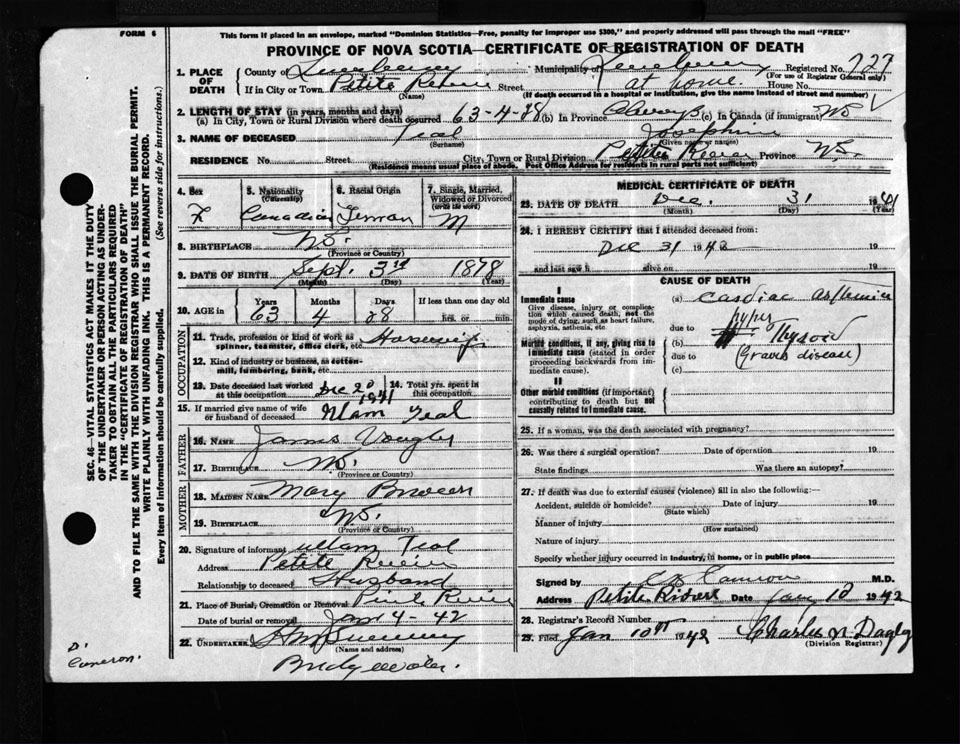 FORM 6
This form if placed in an envelope, marked "Dominion Statistics—Free, penalty for improper use $300," and properly addressed will pass through the mail "FREE"
PROVINCE OF NOVA SCOTIA—CERTIFICATE OF REGISTRATION OF DEATH
SEC. 46—VITAL STATISTICS ACT MAKES IT THE DUTY
OF THE UNDERTAKER OR PERSON ACTING AS UNDER-
TAKER TO OBTAIN ALL THE PARTICULARS REQUIRED
IN THE "CERTIFICATE OF REGISTRATION OF DEATH"
AND TO FILE THE SAME WITH THE DIVISION REGISTRAR WHO SHALL ISSUE THE BURIAL PERMIT.
WRITE PLAINLY WITH UNFADING INK. THIS IS A PERMANENT RECORD.
Every item of information should be carefully supplied. (See reverse side for instructions.)
1. PLACE OF DEATH
County of Lunenburg Municipality of Registered No. 727
(For use of Registrar General only)
If in City or Town Petite Riviere Street at home House No.
(Name) (If death occurred in a hospital or institution, give the name instead of street and number)
2. LENGTH OF STAY (in years, months and days)
(a) In City, Town or Rural Division where death occurred 63-4-28 (b) In Province Always (c) In Canada (if immigrant) NS
3. NAME OF DECEASED Teal Josephine
(Surname) (Given name or names)
RESIDENCE No. Street City, Town or Rural Division Petite Riviere Province NS.
(Residence means usual place of abode. Post Office Address for residents in rural parts not sufficient)
4. Sex F
5. Nationality (Citizenship) Canadian
6. Racial Origin German
7. Single, Married, Widowed or Divorced (write the word) M
8. BIRTHPLACE NS.
(Province or Country)
9. DATE OF BIRTH Sept. 3rd 1878
(Month) (Day) (Year)
10. AGE in Years 63 Months 4 Days 28 If less than one day old hrs. or min.
OCCUPATION
11. Trade, profession or kind of work as spinner, teamster, office clerk, etc. Housewife
12. Kind of industry or business, as cotton-mill, lumbering, bank, etc.
13. Date deceased last worked at this occupation Dec 20 1941
14. Total yrs. spent in this occupation
15. If married give name of wife or husband of deceased Teal
FATHER
16. NAME James
17. BIRTHPLACE NS.
(Province or Country)
MOTHER
18. MAIDEN NAME Mary
19. BIRTHPLACE NS.
(Province or Country)
20. Signature of informant Teal
Address Petite Riviere
Relationship to deceased Husband
21. Place of Burial, Cremation or Removal Riviere
Date of burial or removal Jan 4 - 42
22. UNDERTAKER
(Name and address)
Bridgewater.
Dr
Cameron.
MEDICAL CERTIFICATE OF DEATH
23. DATE OF DEATH Dec. 31 1941
(Month) (Day) (Year)
24. I HEREBY CERTIFY that I attended deceased from:
Dec 31 1942 19
and last saw h alive on 19
CAUSE OF DEATH
I
Immediate cause
Give disease, injury or complication which caused death, not the mode of dying, such as heart failure, asphyxia, asthenia, etc.
(a) Cardiac asthenia
due to
Morbid conditions, if any, giving rise to immediate cause (stated in order proceeding backwards from immediate cause).
(b) hyper Thyroid
due to (Graves disease)
(c)
II
Other morbid conditions (if important) contributing to death but not causally related to immediate cause.
25. If a woman, was the death associated with pregnancy?
26. Was there a surgical operation? Date of operation 19
State findings Was there an autopsy?
27. If death was due to external causes (violence) fill in also the following:—
Accident, suicide or homicide? Date of injury 19
(State which)
Manner of injury
(How sustained)
Nature of injury
Specify whether injury occurred in industry, in home, or in public place
Signed by Cameron M.D.
Address Petite Riviere Date Jan 10 1942
28. Registrar's Record Number
29. Filed Jan 10th 1942 Charles N Dagley
(Division Registrar)